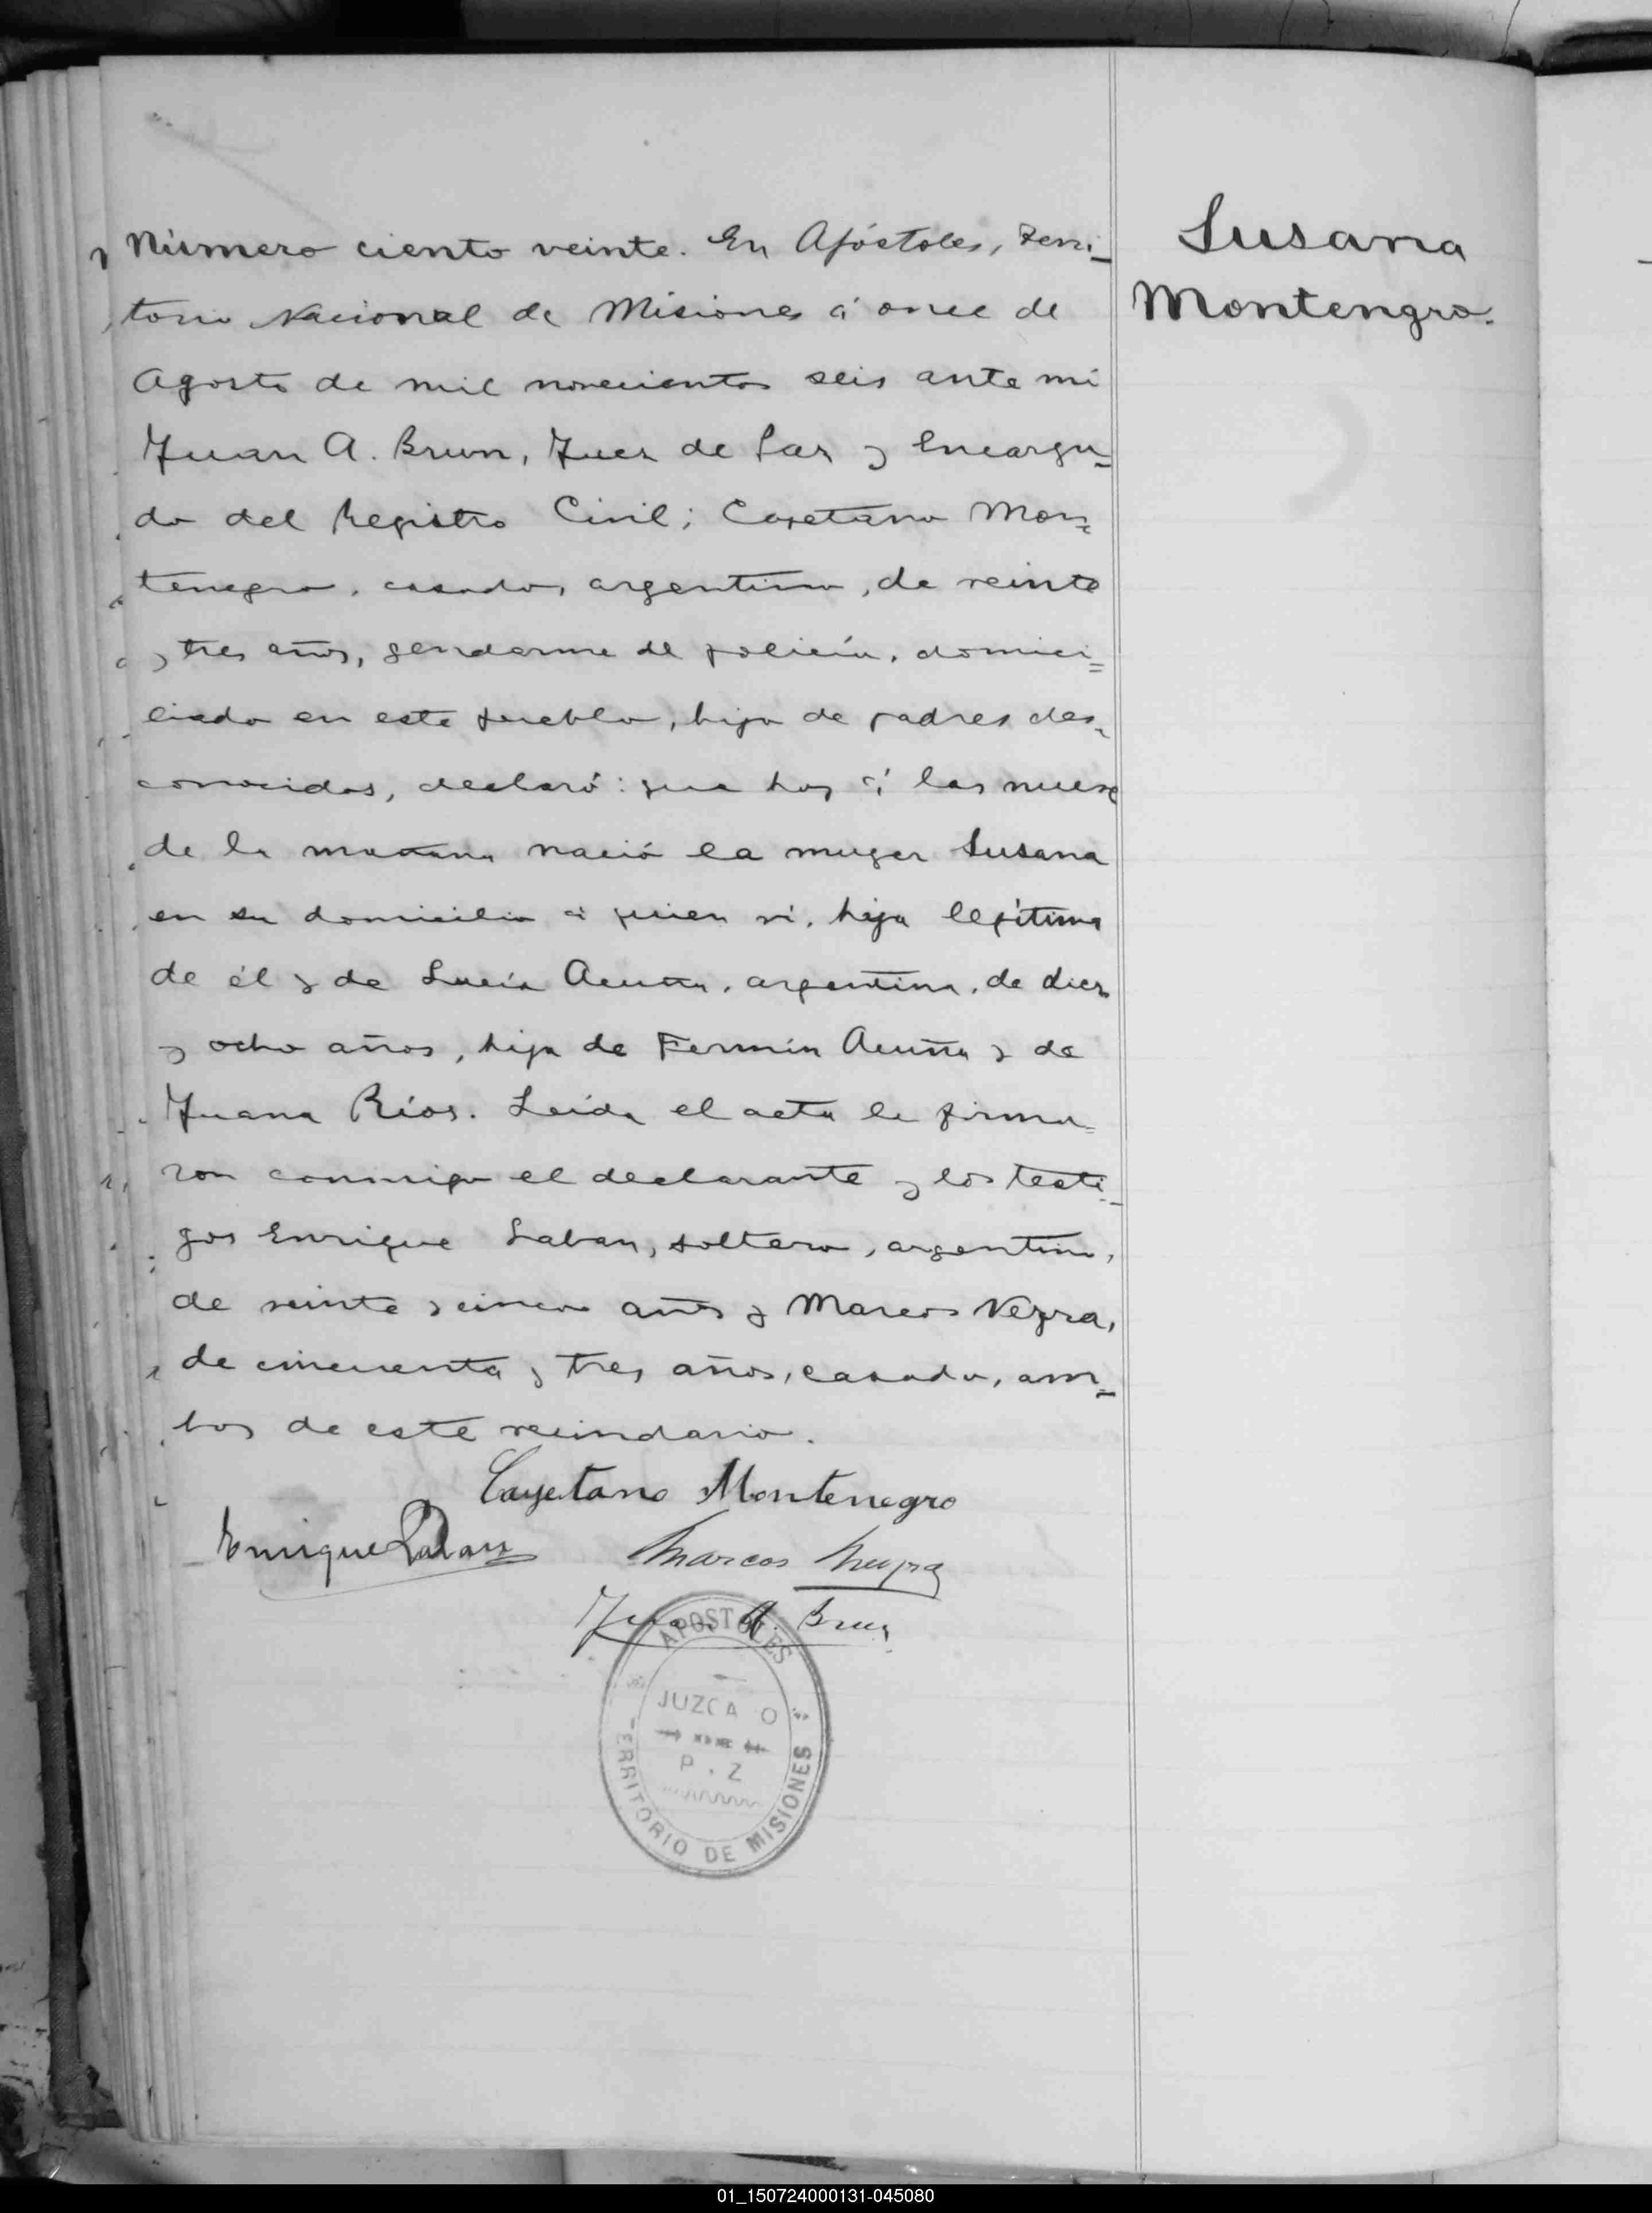 Número ciento veinte. En Apóstoles, Terri-
torio Nacional de Misiones á once de
Agosto de mil novecientos seis ante mi
Juan A. Brun, Juez de Paz y Encarga-
do del Registro Civil; Cayetano Mon-
tenegro, casado, argentino, de veinte
y tres años, gendarme de policía, domici-
liado en este pueblo, hijo de padres des-
conocidos, declaró: que hoy á las nueve
de la mañana nació la muger Susana
en su domicilio á quien ví, hija legítima
de él y de Lucía Acuña, argentina, de diez
y ocho años, hija de Fermín Acuña y de
Juana Ríos. Leída el acta la firma-
ron conmigo el declarante y los testi-
gos Enrique Laban, soltero, argentino,
de veinte y cinco años y Marcos Neyra,
de cincuenta y tres años, casado, am-
bos de este vecindario.
Cayetano Montenegro
Enrique Laban
Marcos Neyra
Juan A. Brun
Susana
Montengro.
APOSTOLES
JUZGADO
P. Z
TERRITORIO DE MISIONES
01_150724000131-045080